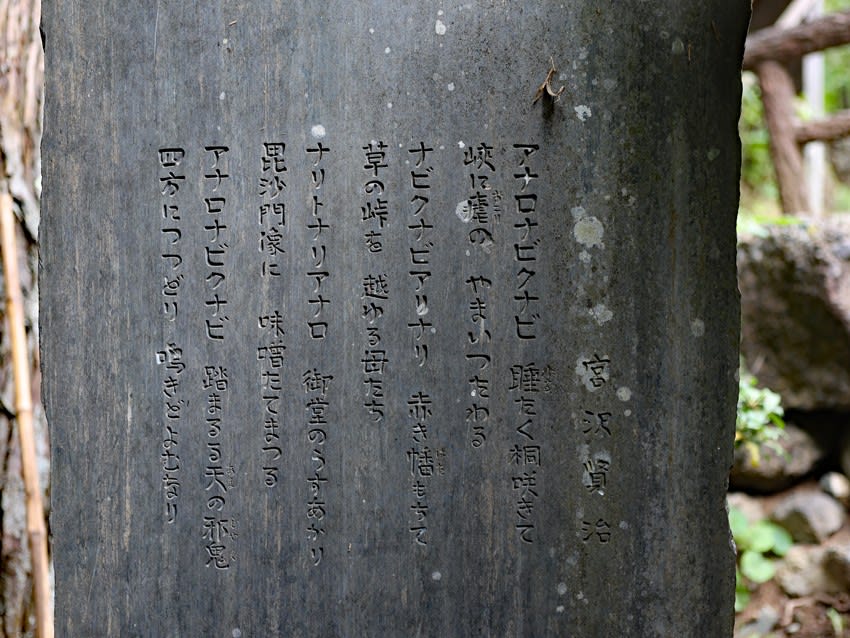 宮沢賢治
アナロナビクナビ 睡たく桐咲きて
峡に瘧の やまいつたわる
ナビクナビアリナリ 赤き幡もちて
草の峠を 越ゆる母たち
ナリトナリアナロ 御堂のうすあかり
毘沙門像に 味噌たてまつる
アナロナビクナビ 踏まるる天の邪鬼
四方につつどり 鳴きどよむなり